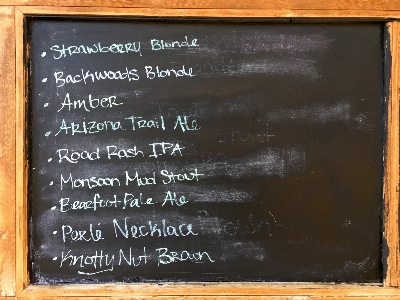 • Strawberry Blonde
• Backwoods Blonde
• Amber
• Arizona Trail Ale
• Road Rash IPA
• Monsoon Mud Stout
• Bearfoot Pale Ale
• Porle Necklace
• Knotty Nut Brown